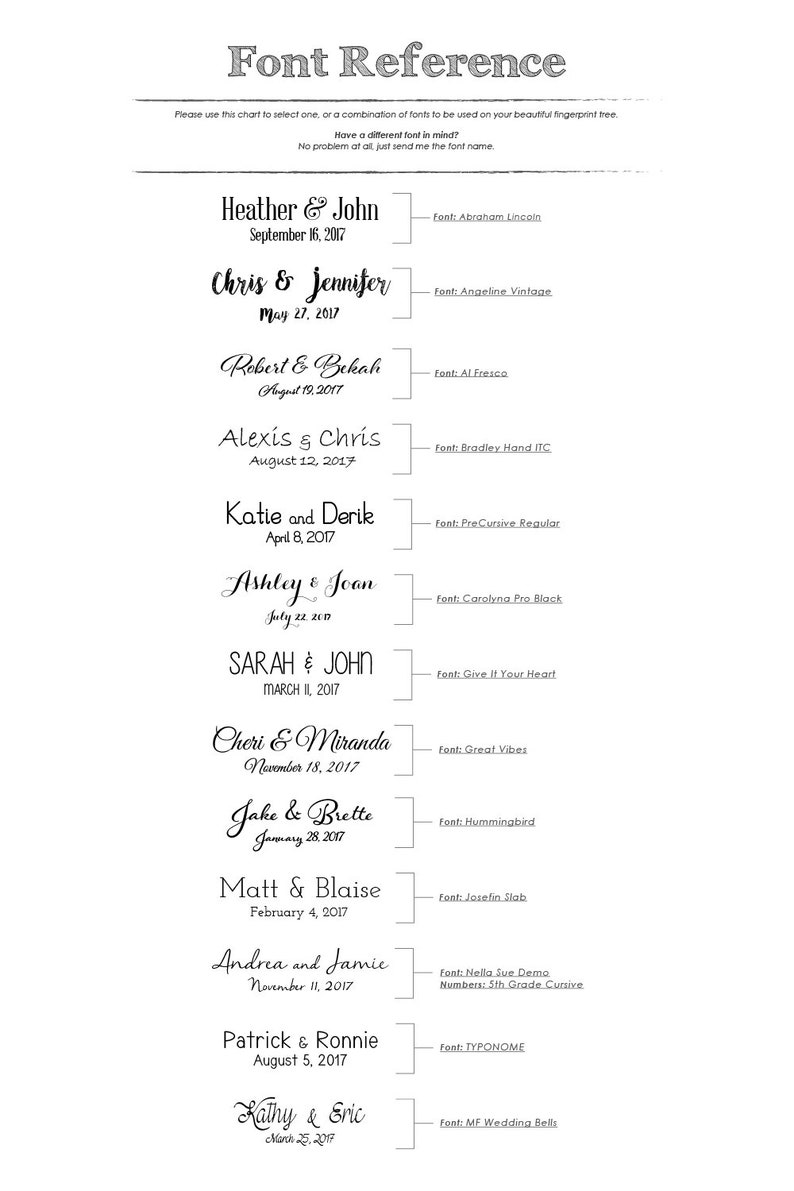 Font Reference
Please use this chart to select one, or a combination of fonts to be used on your beautiful fingerprint tree.
Have a different font in mind?
No problem at all, just send me the font name.
Heather & John
September 16, 2017
Font: Abraham Lincoln
Chris & Jennifer
May 27, 2017
Font: Angeline Vintage
Robert & Bekah
August 19, 2017
Font: Al Fresco
Alexis & Chris
August 12, 2017
Font: Bradley Hand ITC
Katie and Derik
April 8, 2017
Font: PreCursive Regular
Ashley & Joan
July 22, 2017
Font: Carolyna Pro Black
SARAH & JOHN
MARCH 11, 2017
Font: Give It Your Heart
Cheri & Miranda
November 18, 2017
Font: Great Vibes
Jake & Brette
January 28, 2017
Font: Hummingbird
Matt & Blaise
February 4, 2017
Font: Josefin Slab
Andrea and Jamie
November 11, 2017
Font: Nella Sue Demo
Numbers: 5th Grade Cursive
Patrick & Ronnie
August 5, 2017
Font: TYPONOME
Kathy & Eric
March 25, 2017
Font: MF Wedding Bells